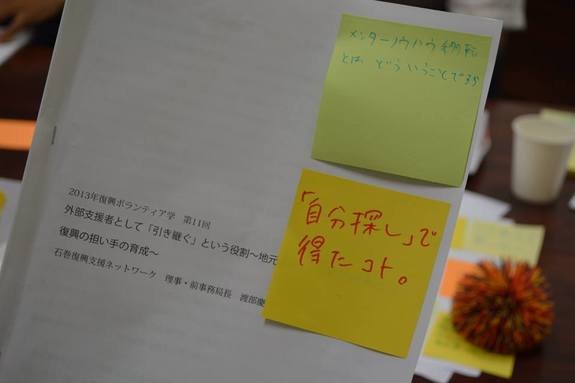 メンターノウハウ移転
とは どういうことですか
「自分探し」で
得たコト。
2013年復興ボランティア学 第11回
外部支援者として「引き継ぐ」という役割〜地元
復興の担い手の育成〜
石巻復興支援ネットワーク 理事・前事務局長 渡部慶